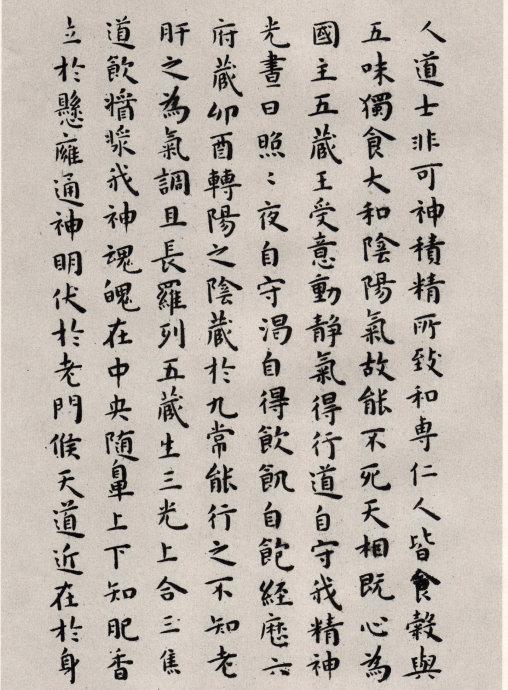 人道士非可神積精所致和專仁人皆食穀與
五味獨食大和陰陽氣故能不死天相既心為
國主五藏王受意動靜氣得行道自守我精神
光晝日照〻夜自守渴自得飲飢自飽經歷六
府藏卯酉轉陽之陰藏於九常能行之不知老
肝之為氣調且長羅列五藏生三光上合三焦
道飲醬漿我神魂魄在中央随鼻上下知肥香
立於懸廱通神明伏於老門候天道近在於身